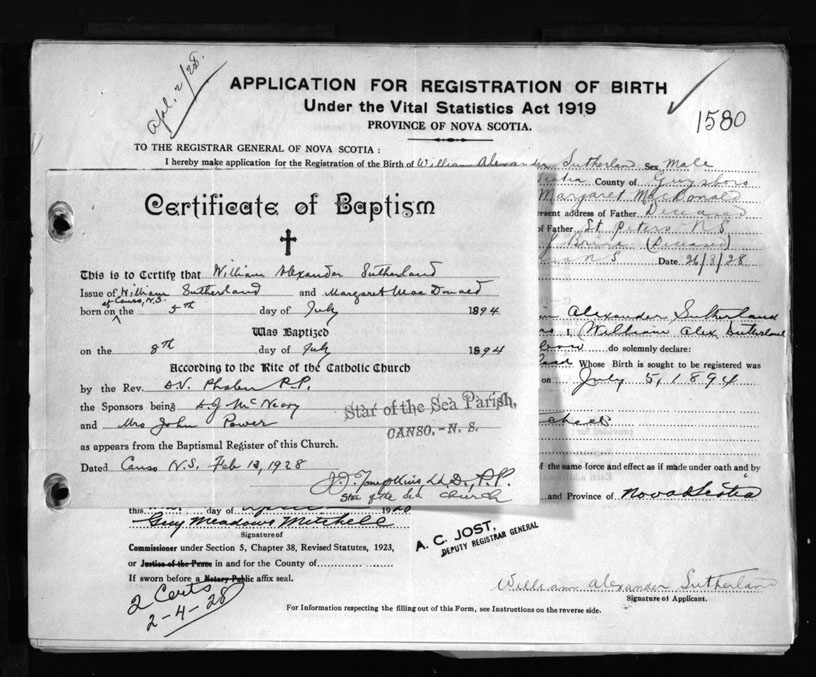 Apl. 2/28.
APPLICATION FOR REGISTRATION OF BIRTH
Under the Vital Statistics Act 1919
PROVINCE OF NOVA SCOTIA.
1580
TO THE REGISTRAR GENERAL OF NOVA SCOTIA :
I hereby make application for the Registration of the Birth of William Alexander Sutherland Sex Male
Scotia County of Guysboro
Margaret MacDonald
resent address of Father Deceased
of Father St. Peters N.S.
(Deceased)
N.S. Date 26/3/28
Alexander Sutherland
I, William Alex Sutherland
do solemnly declare:
Whose Birth is sought to be registered was
on July 5, 1894
of the same force and effect as if made under oath and by
and Province of Nova Scotia
Certificate of Baptism
This is to Certify that William Alexander Sutherland
Issue of William Sutherland and Margaret MacDonald
of Canso, N.S.
born on the 5th day of July 1894
Was Baptized
on the 8th day of July 1894
According to the Rite of the Catholic Church
by the Rev. P.P.
the Sponsors being
and Mrs John Power
Star of the Sea Parish,
CANSO, - N. S.
as appears from the Baptismal Register of this Church.
Dated Canso N.S. Feb 1928
P.P.
Star of the Sea Church
this day of April 19
Guy Meadows Mitchell
Signature of
Commissioner under Section 5, Chapter 38, Revised Statutes, 1923,
or Justice of the Peace in and for the County of
If sworn before a Notary Public affix seal.
A. C. JOST,
DEPUTY REGISTRAR GENERAL
2 Certs
2-4-28
William Alexander Sutherland
Signature of Applicant.
For Information respecting the filling out of this Form, see Instructions on the reverse side.